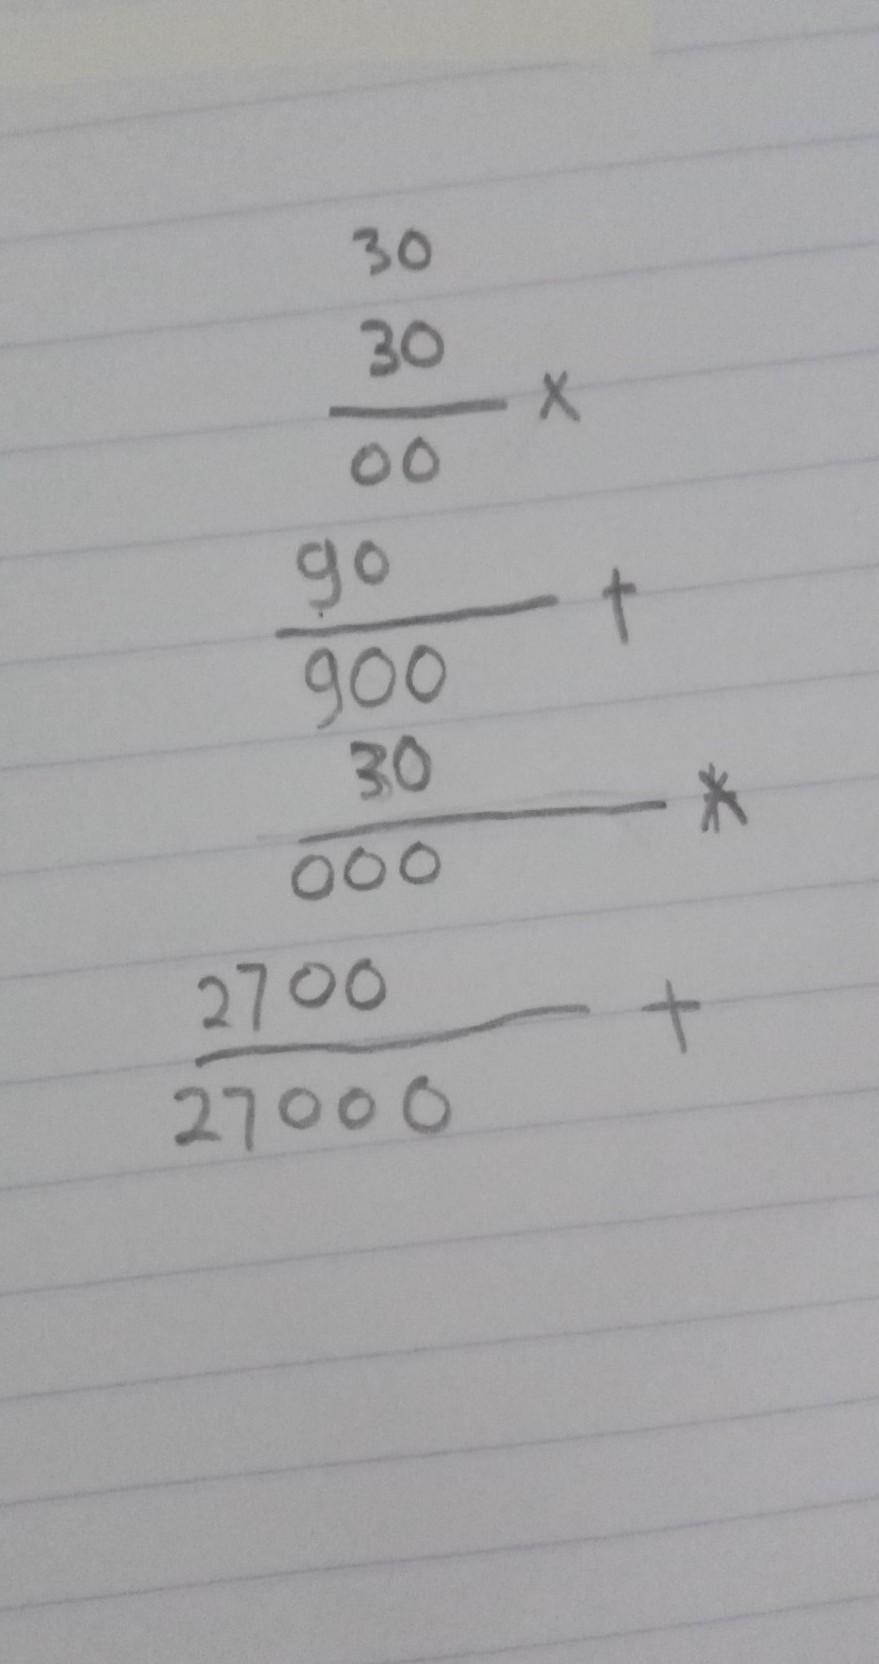 30
30
x
00
90
+
900
30
*
000
2700
+
27000